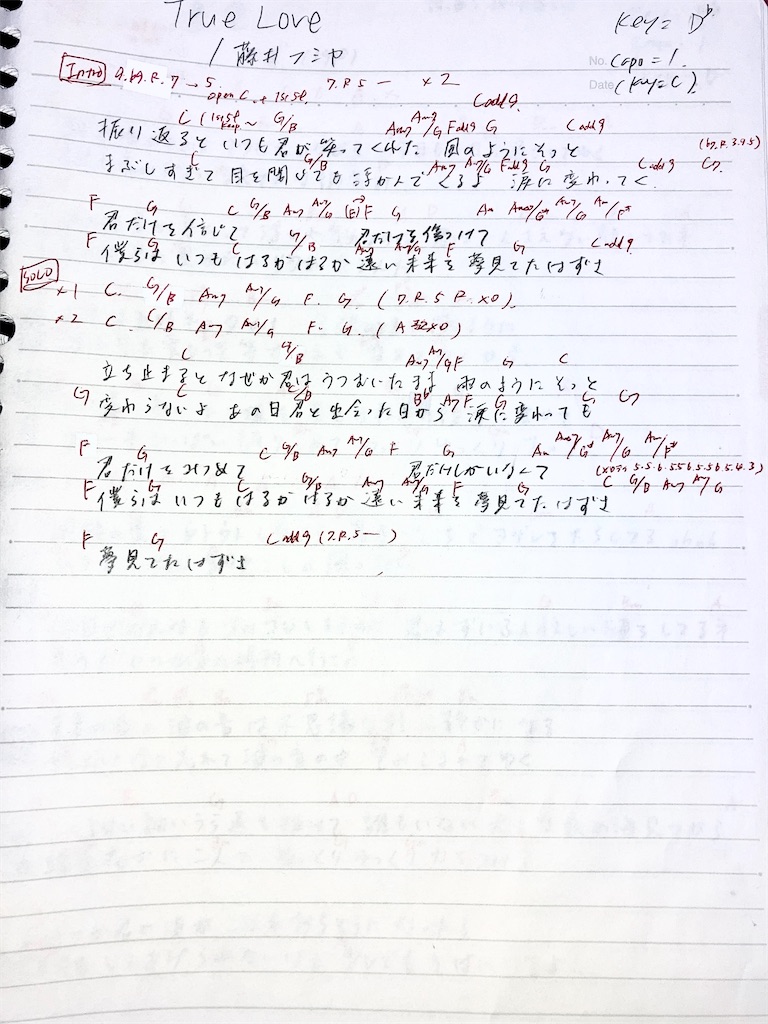 True Love
Key = D♭
/ 藤井フミヤ
No. Capo = 1.
Date (Key = C)
Intro → 5 7. P. 5 — ×2
open C
Cadd9
C G/B Am7 Am7/G Fadd9 G Cadd9
振り返ると いつも君が笑ってくれた 風のようにそっと
C G/B Am7 Am7/G Fadd9 G Cadd9 C7
まぶしすぎて 目を閉じても浮かんでくるよ 涙に変わってく
F G C G/B Am7 Am7/G F G Am Am7/G
君だけを信じて 君だけを傷つけて
F G C G/B Am7 Am7/G F G Cadd9
僕らは いつも はるか はるか 遠い未来を 夢見てたはずさ
SOLO
×1 C. G/B Am7 Am7/G F. G. (7. P. 5 P. ×0)
×2 C. G/B Am7 Am7/G F. G. (A型×0)
C G/B Am7 Am7/G F G C
立ち止まると なぜか君は うつむいたまま 雨のように そっと
G C G/B B♭ Am7 F G C C7
変わらないよ あの日君と出会った日から 涙に変わっても
F G C G/B Am7 Am7/G F G Am Am7/G
君だけをみつめて 君だけしかいなくて
F G C G/B Am7 Am7/G F G C G/B Am7 Am7/G
僕らは いつも はるか はるか 遠い未来を 夢見てたはずさ
F G Cadd9 (7. P. 5 —)
夢見てたはずさ